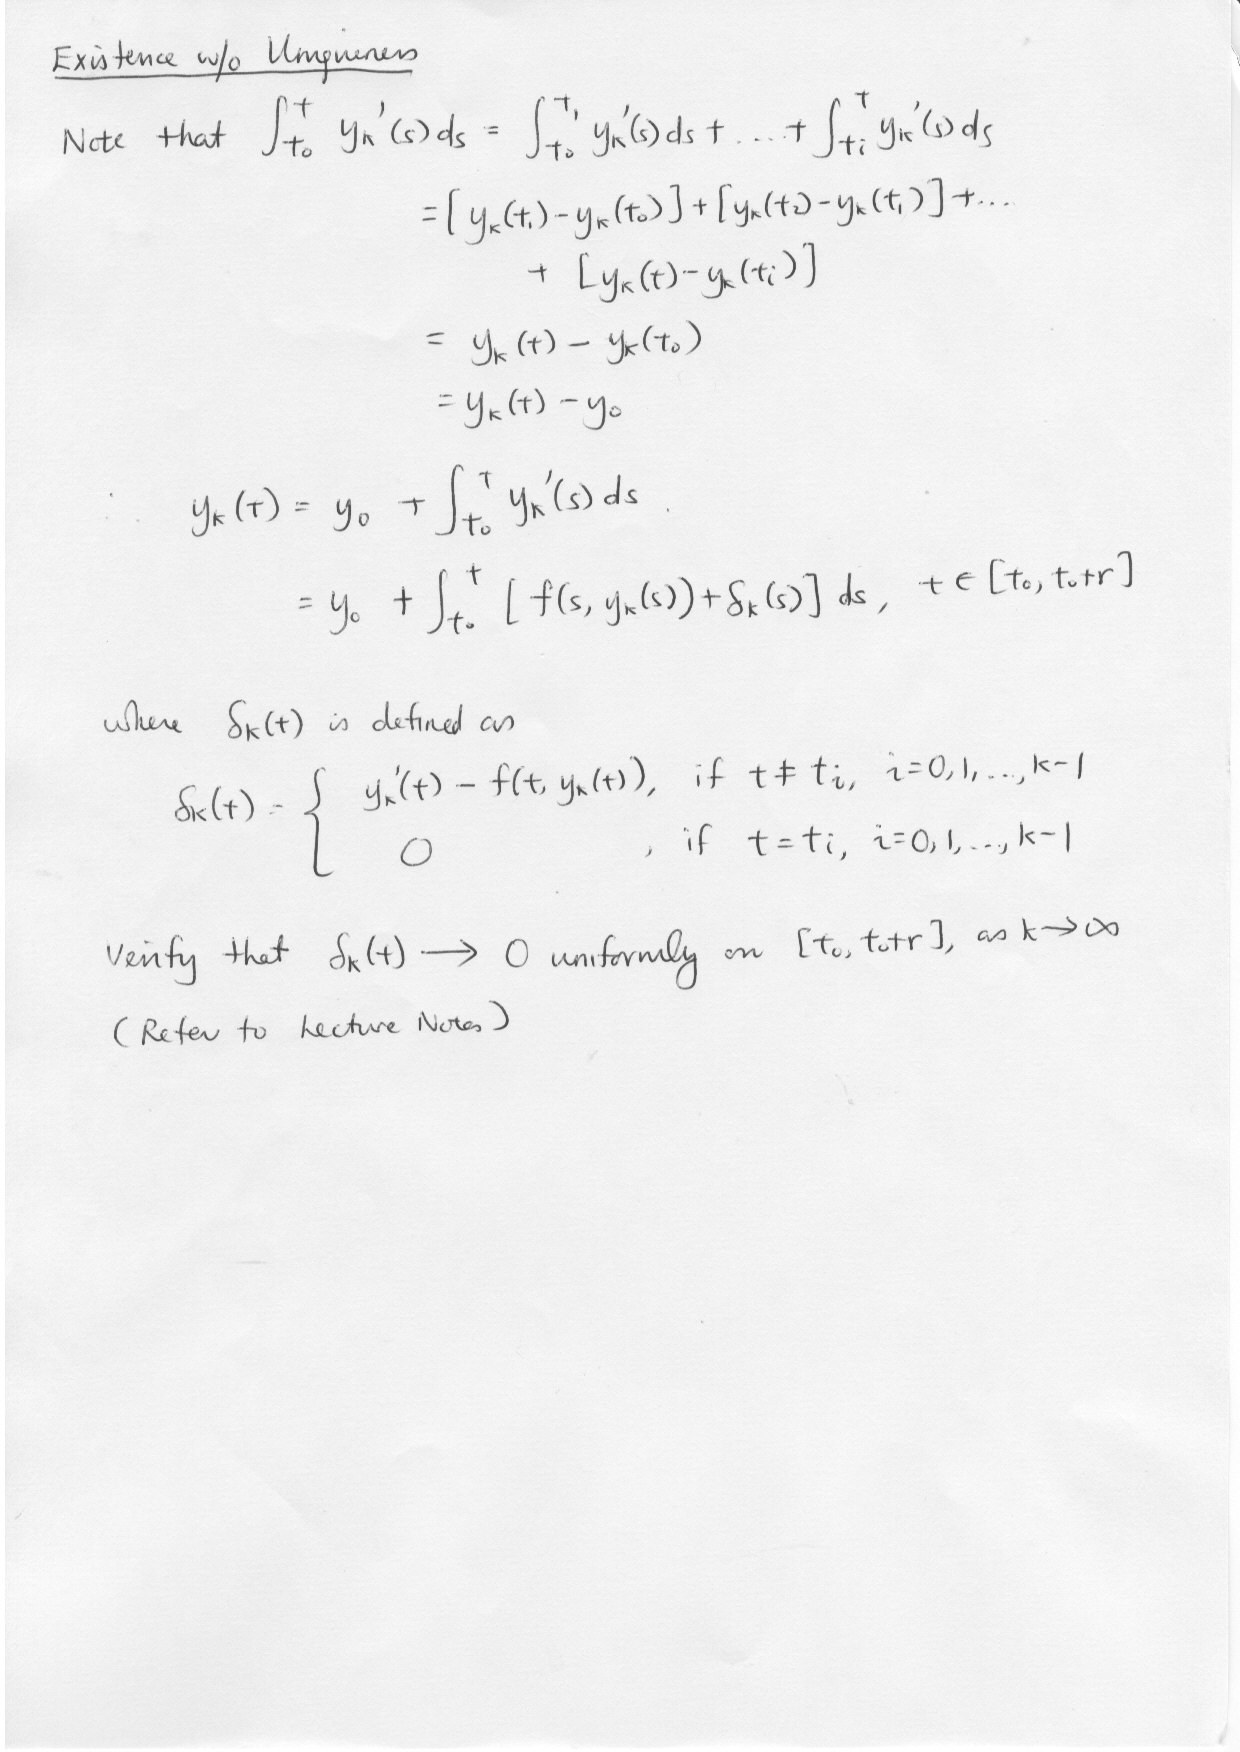 Existence w/o Uniqueness
Note that ∫_{t₀}^{t} yₖ'(s) ds = ∫_{t₀}^{t₁} yₖ'(s) ds + ... + ∫_{tᵢ}^{t} yₖ'(s) ds
= [yₖ(t₁) - yₖ(t₀)] + [yₖ(t₂) - yₖ(t₁)] + ...
+ [yₖ(t) - yₖ(tᵢ)]
= yₖ(t) - yₖ(t₀)
= yₖ(t) - y₀
yₖ(t) = y₀ + ∫_{t₀}^{t} yₖ'(s) ds.
= y₀ + ∫_{t₀}^{t} [f(s, yₖ(s)) + δₖ(s)] ds, t ∈ [t₀, t₀+r]
where δₖ(t) is defined as
δₖ(t) = { yₖ'(t) - f(t, yₖ(t)), if t ≠ tᵢ, i=0,1,...,k-1
0 , if t = tᵢ, i=0,1,...,k-1
Verify that δₖ(t) → 0 uniformly on [t₀, t₀+r], as k→∞
(Refer to Lecture Notes)